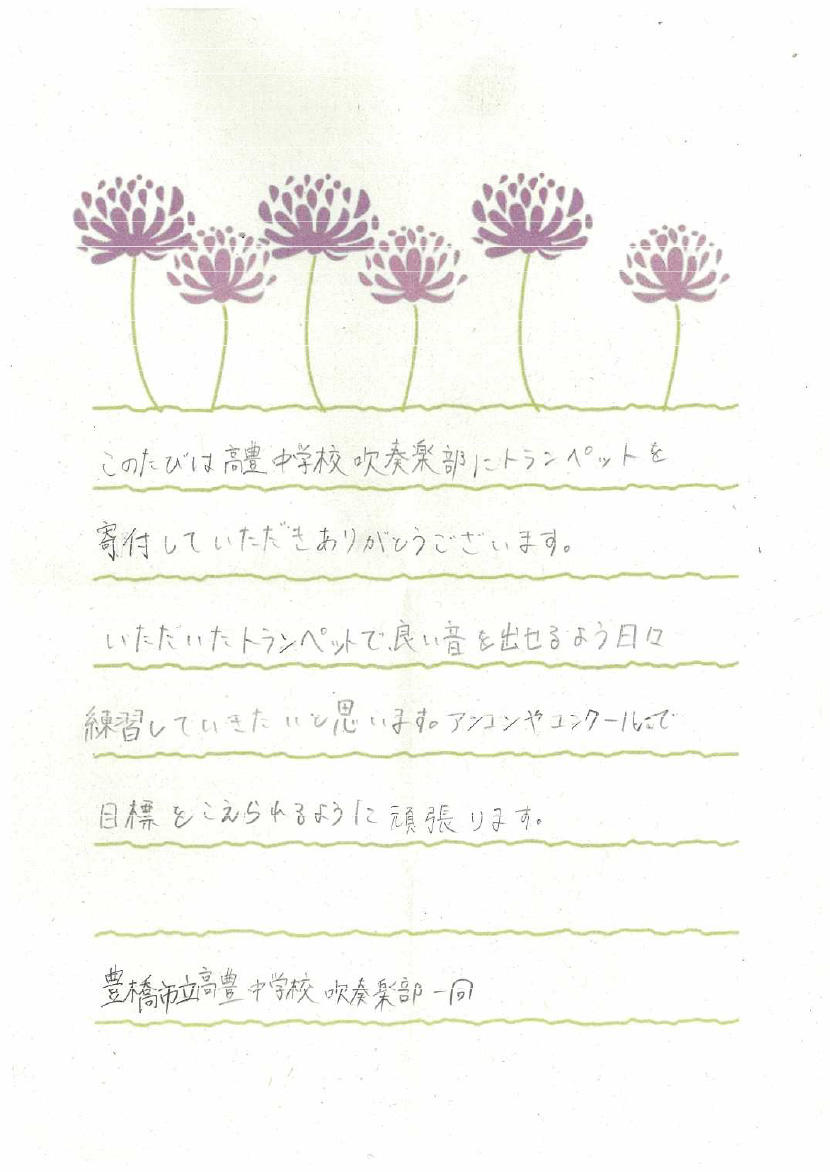 このたびは高豊中学校吹奏楽部にトランペットを
寄付していただきありがとうございます。
いただいたトランペットで、良い音を出せるよう日々
練習していきたいと思います。アンコンやコンクールにで
目標をこえられるように頑張ります。
豊橋市立高豊中学校吹奏楽部一同